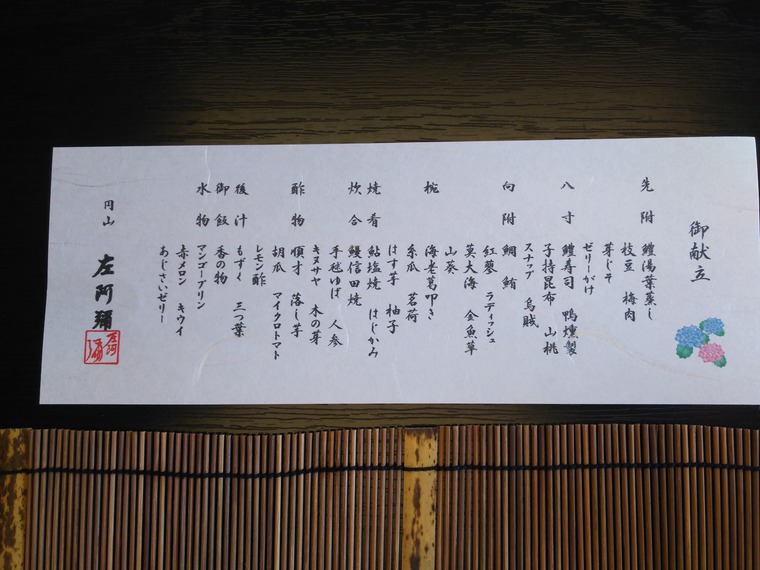 御献立
先附
鱧湯葉蒸し
枝豆 梅肉
芽じそ
ゼリーがけ
八寸
鱧寿司 鴨燻製
子持昆布 山桃
スナップ 烏賊
向附
鯛 鮪
紅蓼 ラディッシュ
莫大海 金魚草
山葵
椀
海老葛叩き
糸瓜 茗荷
はす芋 柚子
焼肴
鮎塩焼 はじかみ
炊合
鰻信田焼
手毬ゆば 人参
キヌサヤ 木の芽
酢物
順才 落し芋
胡瓜 マイクロトマト
レモン酢
後汁
もずく 三つ葉
御飯
香の物
水物
マンゴープリン
赤メロン キウイ
あじさいゼリー
円山
左阿彌